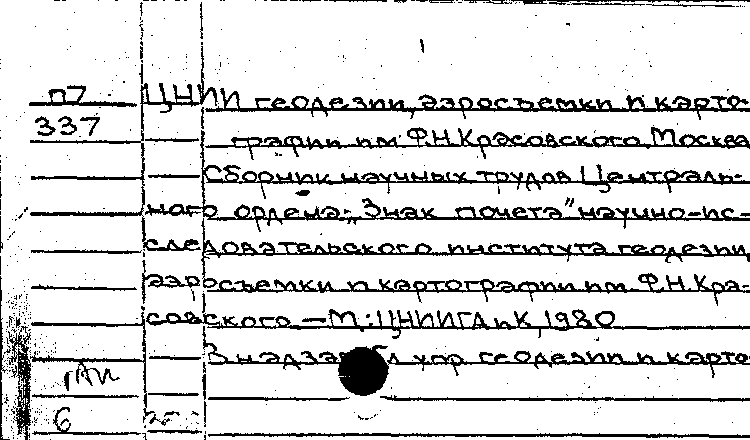 п7 ЦНИИ геодезии, аэросъемки и карто-
337 графии им. Ф.Н.Красовского. Москва
Сборник научных трудов Централь-
ного ордена „Знак почета" научно-ис-
следовательского института геодезии,
аэросъемки и картографии им. Ф.Н.Кра-
совского. — М.: ЦНИИГАиК, 1980
В надзаг. Гл упр геодезии и карто
ГАИ
6